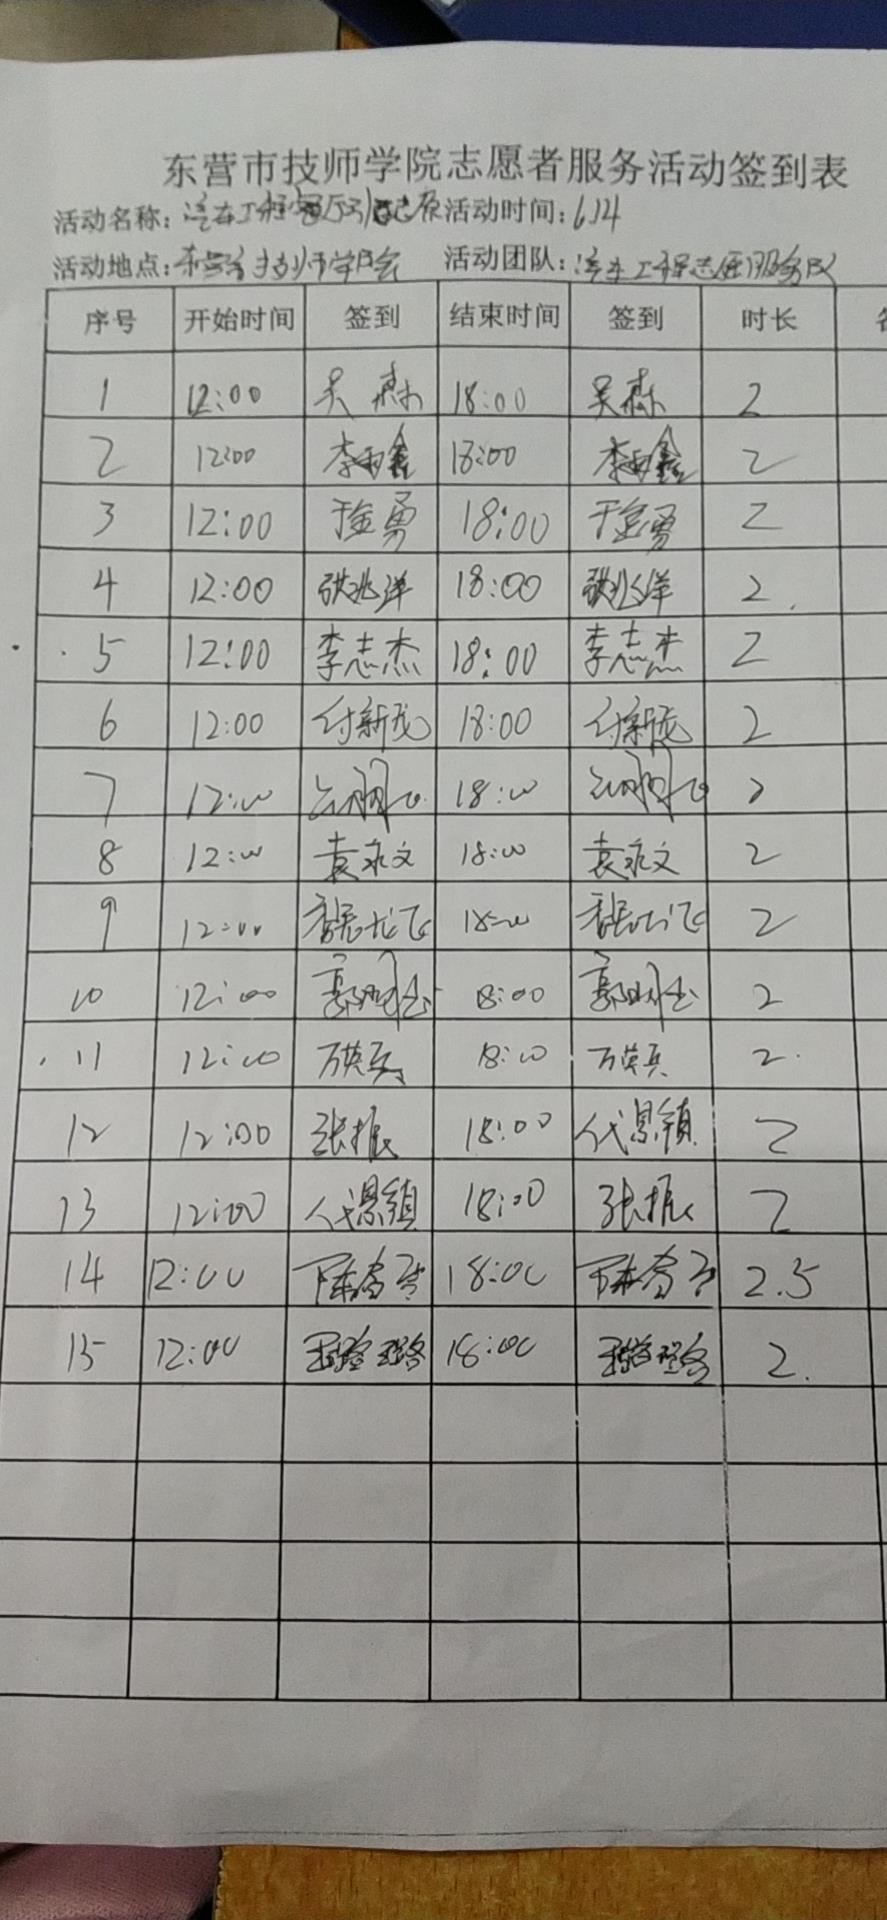 东营市技师学院志愿者服务活动签到表
活动名称: 汽车工程 活动时间: 6.14
活动地点: 东营市技师学院 活动团队: 汽车工程志愿服务队
序号 开始时间 签到 结束时间 签到 时长
1 12:00 吴森 18:00 吴森 2
2 12:00 李雨鑫 18:00 李雨鑫 2
3 12:00 于金勇 18:00 于金勇 2
4 12:00 张兆洋 18:00 张兆洋 2
5 12:00 李志杰 18:00 李志杰 2
6 12:00 付新茂 18:00 付新茂 2
7 12:00 18:00 2
8 12:00 袁永文 18:00 袁永文 2
9 12:00 18:00 2
10 12:00 18:00 2
11 12:00 万英兵 18:00 万英兵 2
12 12:00 张振 18:00 代恩镇 2
13 12:00 代恩镇 18:00 张振 2
14 12:00 18:00 2.5
15 12:00 18:00 2